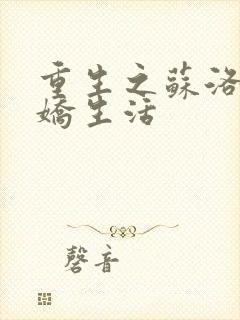 重生之蘇洛
嬌生活
磬音